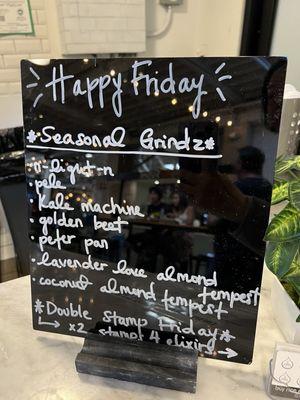 Happy Friday
*Seasonal Grindz*
• pele
• kale machine
• golden beet
• peter pan
• lavender love almond
tempest
• coconut almond tempest
*Double Stamp Friday*
→ x2 stamps 4 elixirs →